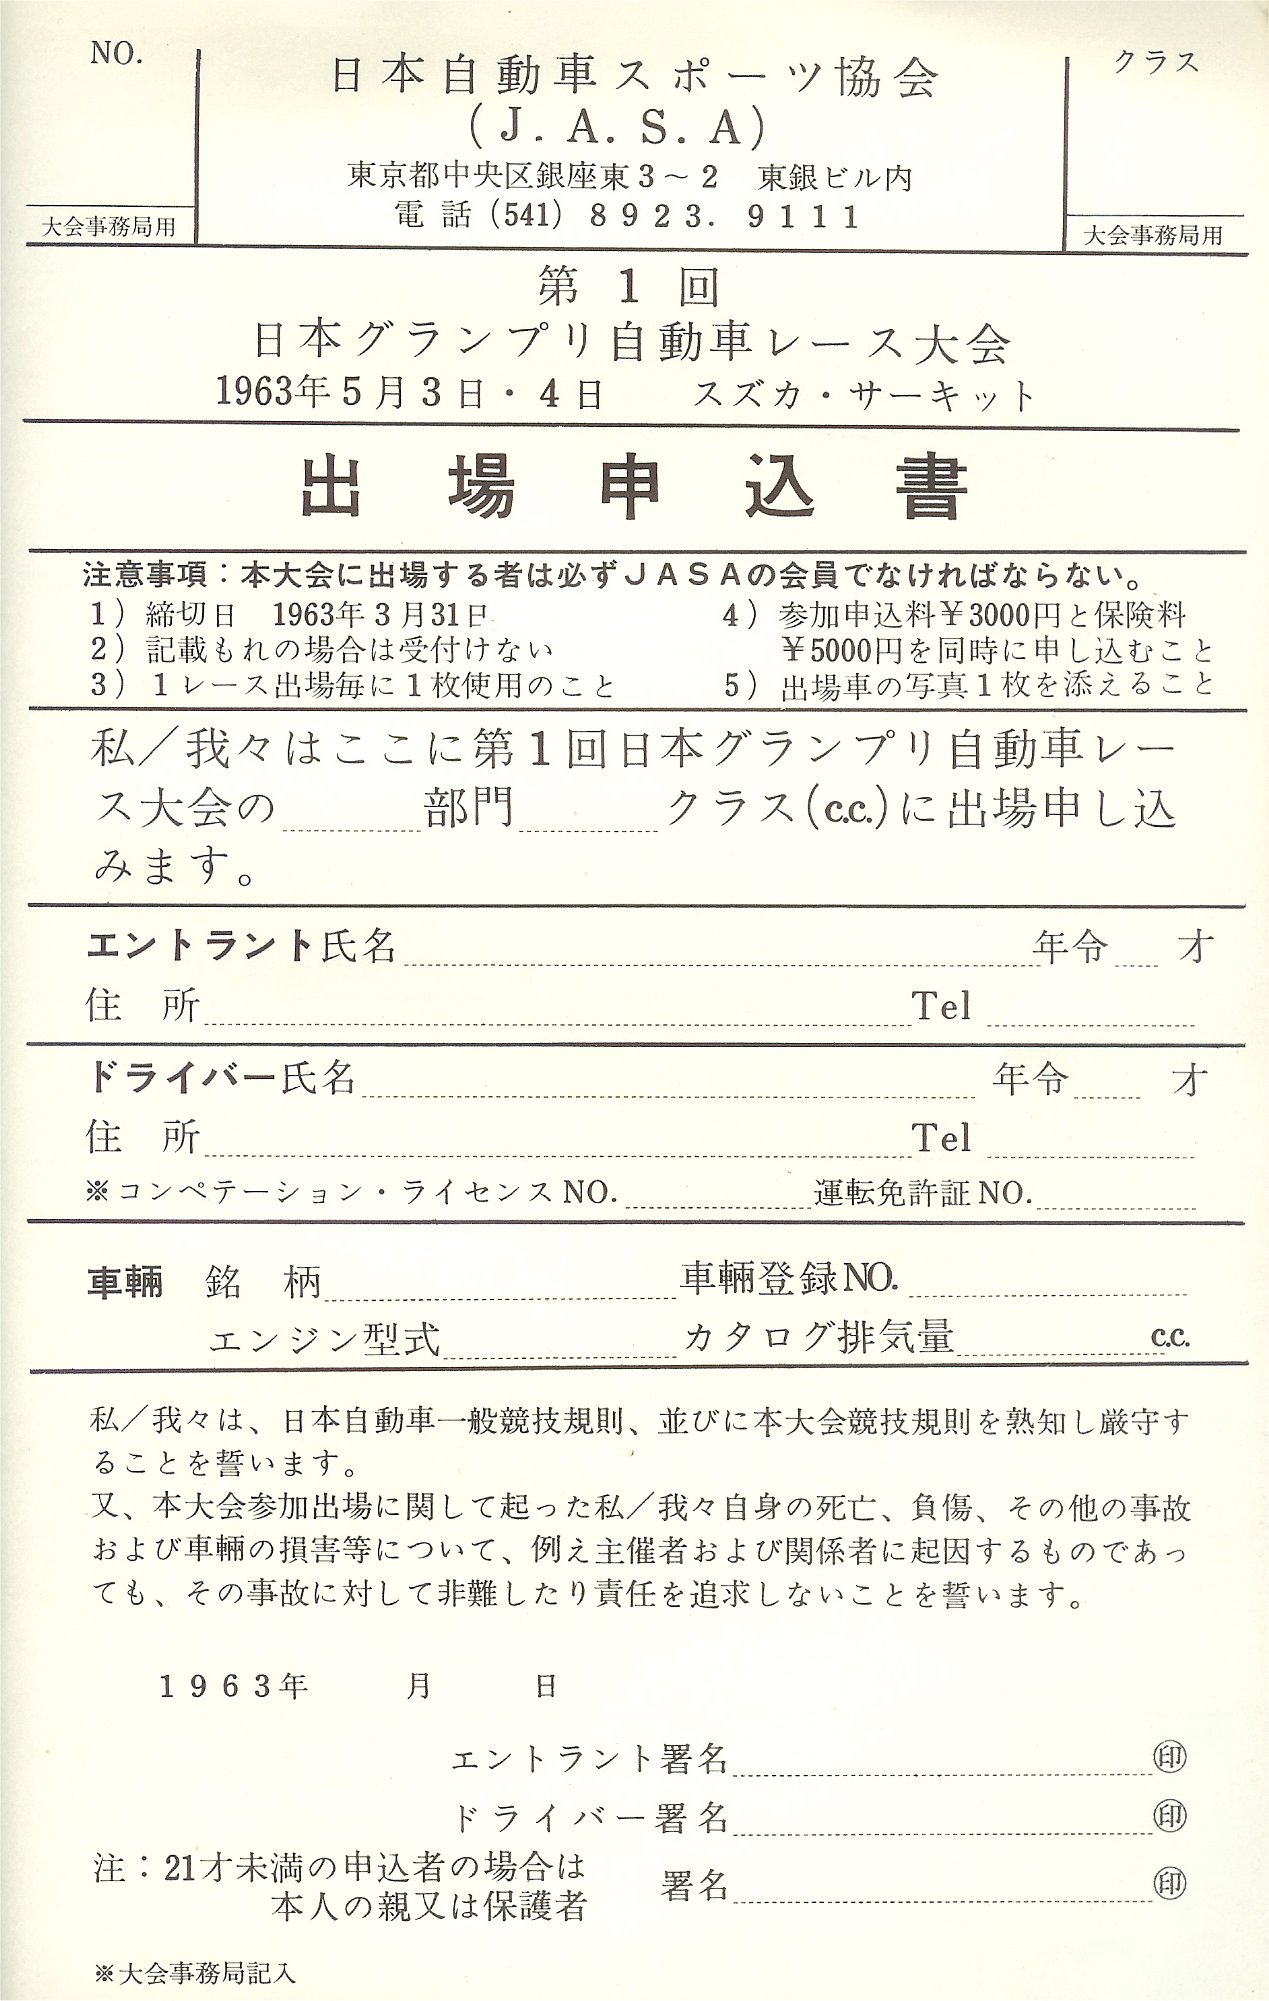 NO.
大会事務局用
日本自動車スポーツ協会
(J. A. S. A)
東京都中央区銀座東3～2　東銀ビル内
電話(541) 8923. 9111
クラス
大会事務局用
第1回
日本グランプリ自動車レース大会
1963年5月3日・4日　スズカ・サーキット
出場申込書
注意事項：本大会に出場する者は必ずJASAの会員でなければならない。
1) 締切日　1963年3月31日
2) 記載もれの場合は受付けない
3) 1レース出場毎に1枚使用のこと
4) 参加申込料￥3000円と保険料
￥5000円を同時に申し込むこと
5) 出場車の写真1枚を添えること
私／我々はここに第1回日本グランプリ自動車レー
ス大会の　　部門　　クラス(c.c.)に出場申し込
みます。
エントラント氏名　　年令　才
住　所　　Tel
ドライバー氏名　　年令　才
住　所　　Tel
※コンペテーション・ライセンスNO.　　運転免許証NO.
車輛　銘　柄　　車輛登録NO.
エンジン型式　　カタログ排気量　　c.c.
私／我々は、日本自動車一般競技規則、並びに本大会競技規則を熟知し厳守す
ることを誓います。
又、本大会参加出場に関して起った私／我々自身の死亡、負傷、その他の事故
および車輛の損害等について、例え主催者および関係者に起因するものであっ
ても、その事故に対して非難したり責任を追求しないことを誓います。
1963年　　月　　日
エントラント署名　　㊞
ドライバー署名　　㊞
注：21才未満の申込者の場合は
本人の親又は保護者　　署名　　㊞
※大会事務局記入